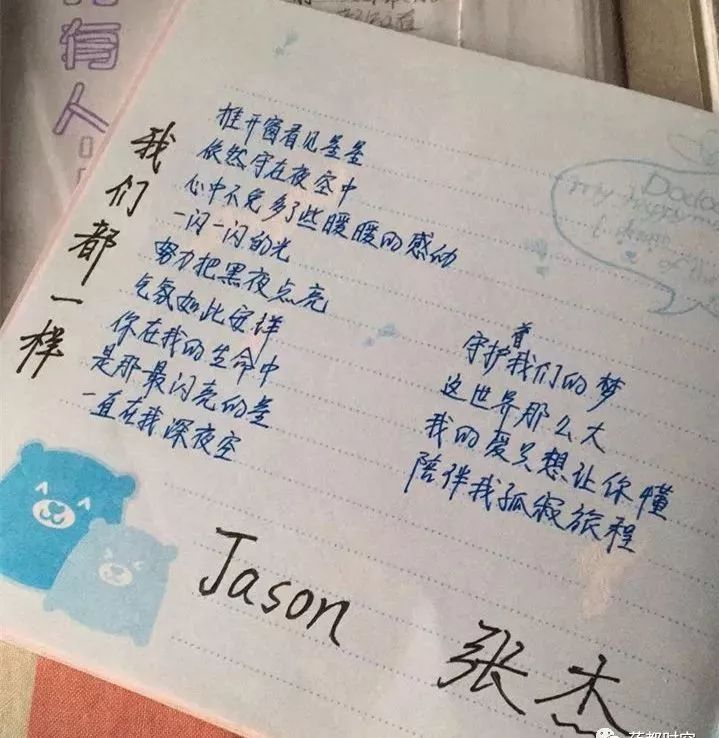 有人
我们都一样
推开窗看见星星
依然守在夜空中
心中不免多了些暖暖的感动
一闪一闪的光
努力把黑夜点亮
气氛如此安详
你在我的生命中
是那最闪亮的星
一直在我深夜空
守护着我们的梦
这世界那么大
我的爱只想让你懂
陪伴我孤寂旅程
Jason 张杰
my happy
花都时空